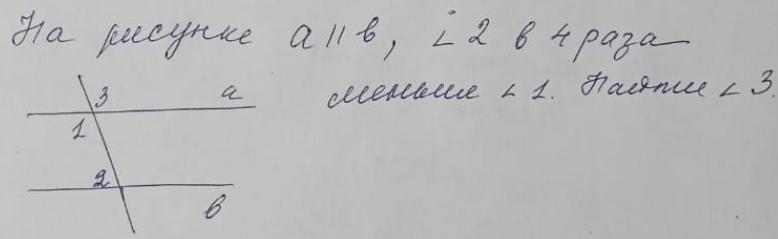 На рисунке a || b, ∠2 в 4 раза
меньше ∠1. Найти ∠3.
3 a
1
2
b